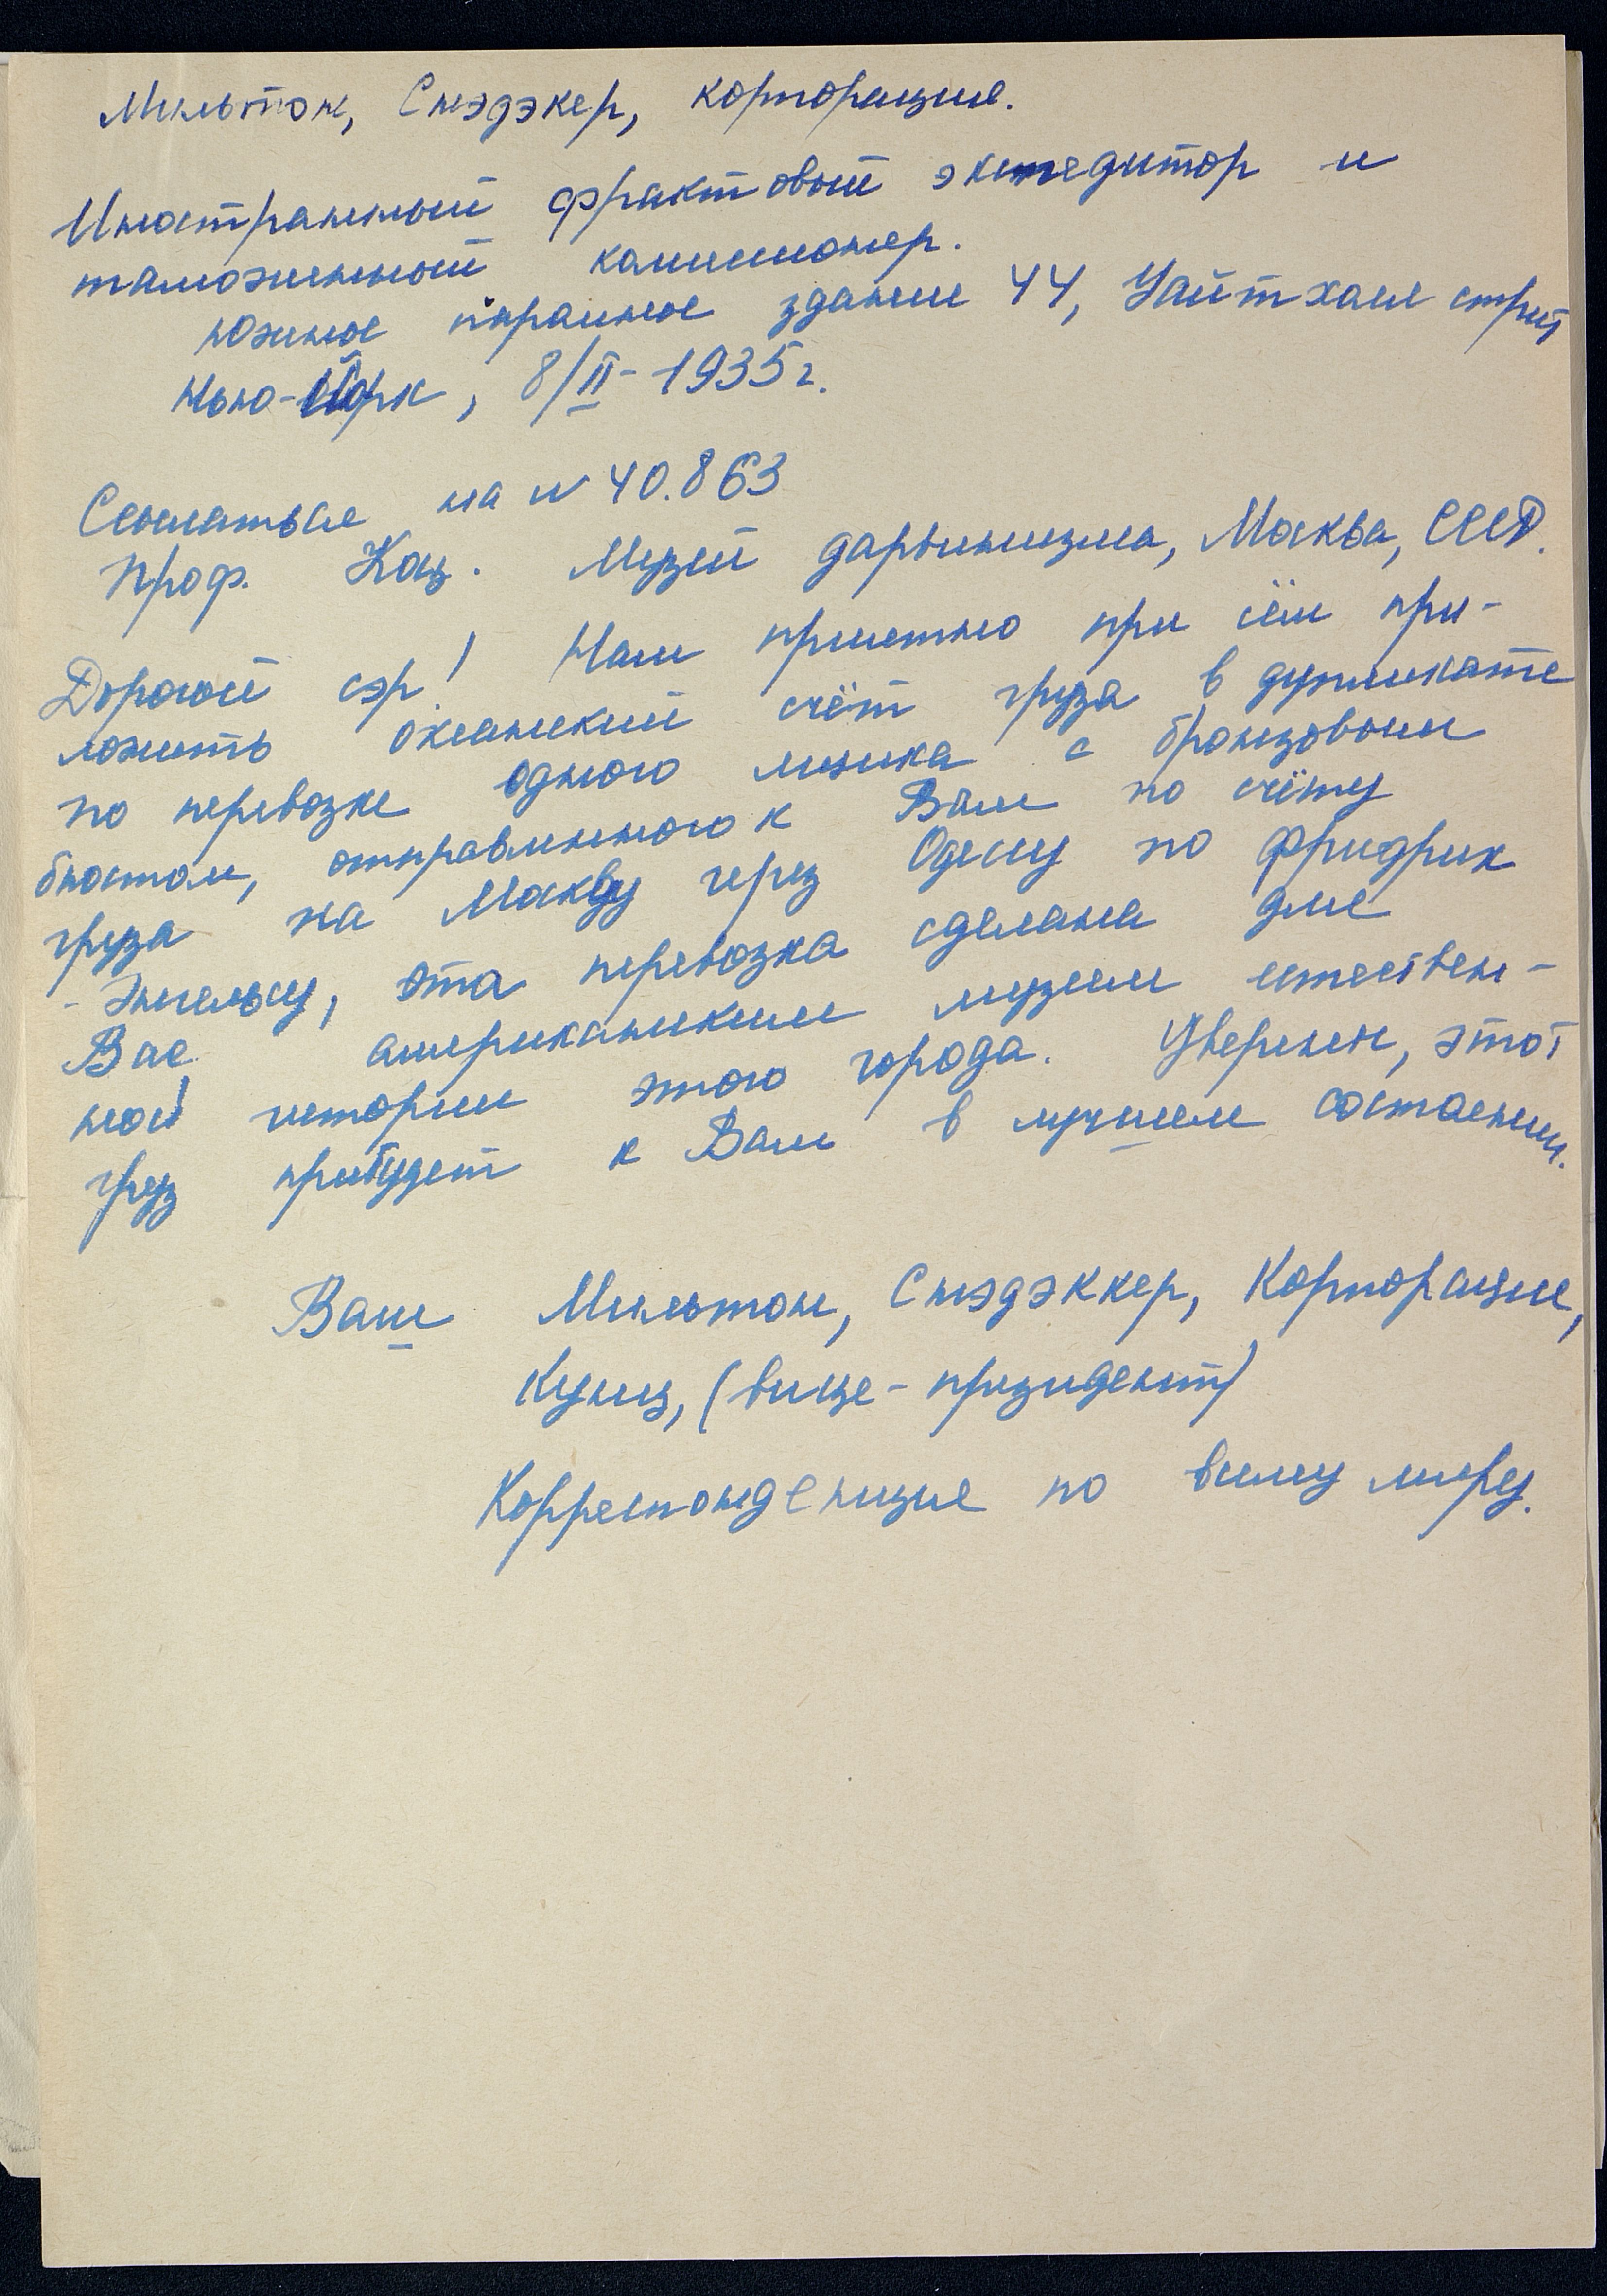 Мильтон, Снэдэкер, корпорация.
Иностранный фрактовый экспедитор и
таможенный комиссионер.
Южное паромное здание 44, Уайтхалл стрит
Нью-Йорк, 8/II-1935г.
Ссылаться на N 40.863
Проф. Коц. Музей дарвинизма, Москва, СССР.
Дорогой сэр! Нам приятно при сём при-
ложить океанский счёт груза в дупликате
по перевозке одного ящика с бронзовым
бюстом, отправленного к Вам по счёту
груза на Москву через Одессу по Фридрик
- Энгельсу, эта перевозка сделана для
Вас американским музеем естествен-
ной истории этого города. Уверены, этот
груз прибудет к Вам в лучшем состоянии.
Ваш Мильтон, Снэдэккер, Корпорация,
Кунц, (вице-президент)
Корреспонденция по всему миру.